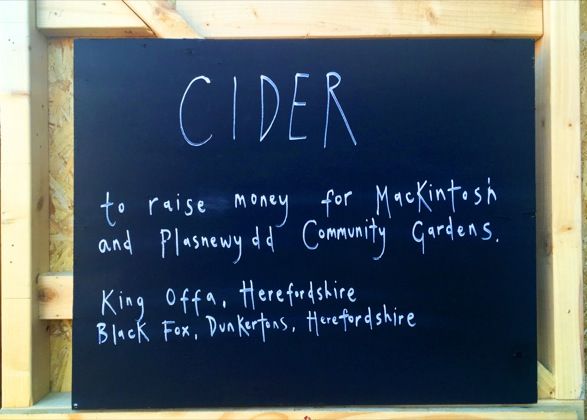 CIDER
to raise money for MacKintosh
and Plasnewydd Community Gardens.
King Offa, Herefordshire
Black Fox, Dunkertons, Herefordshire